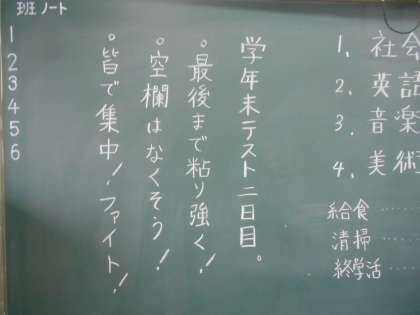 班ノート
1
2
3
4
5
6
学年末テスト二日目。
。最後まで粘り強く!
。空欄はなくそう!
。皆で集中!ファイト!
1、社会
2、英語
3、音楽
4、美術
給食……
清掃……
終学活……